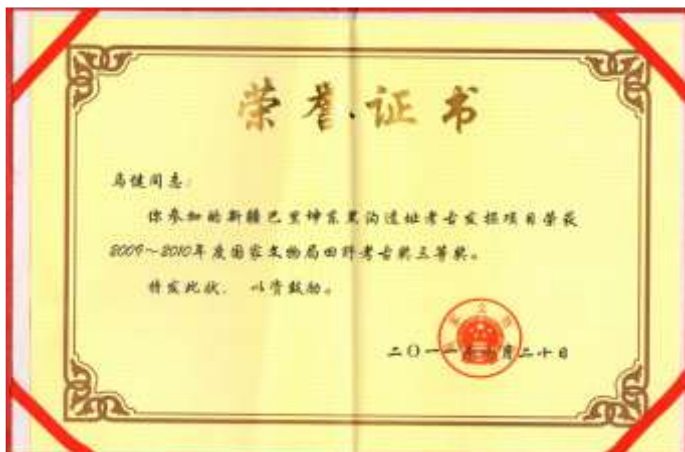 荣誉证书
马健同志:
你参加的新疆巴里坤东黑沟遗址考古发掘项目荣获
2009~2010年度国家文物局田野考古奖三等奖。
特发此状, 以资鼓励。
二〇一一年 月二十日